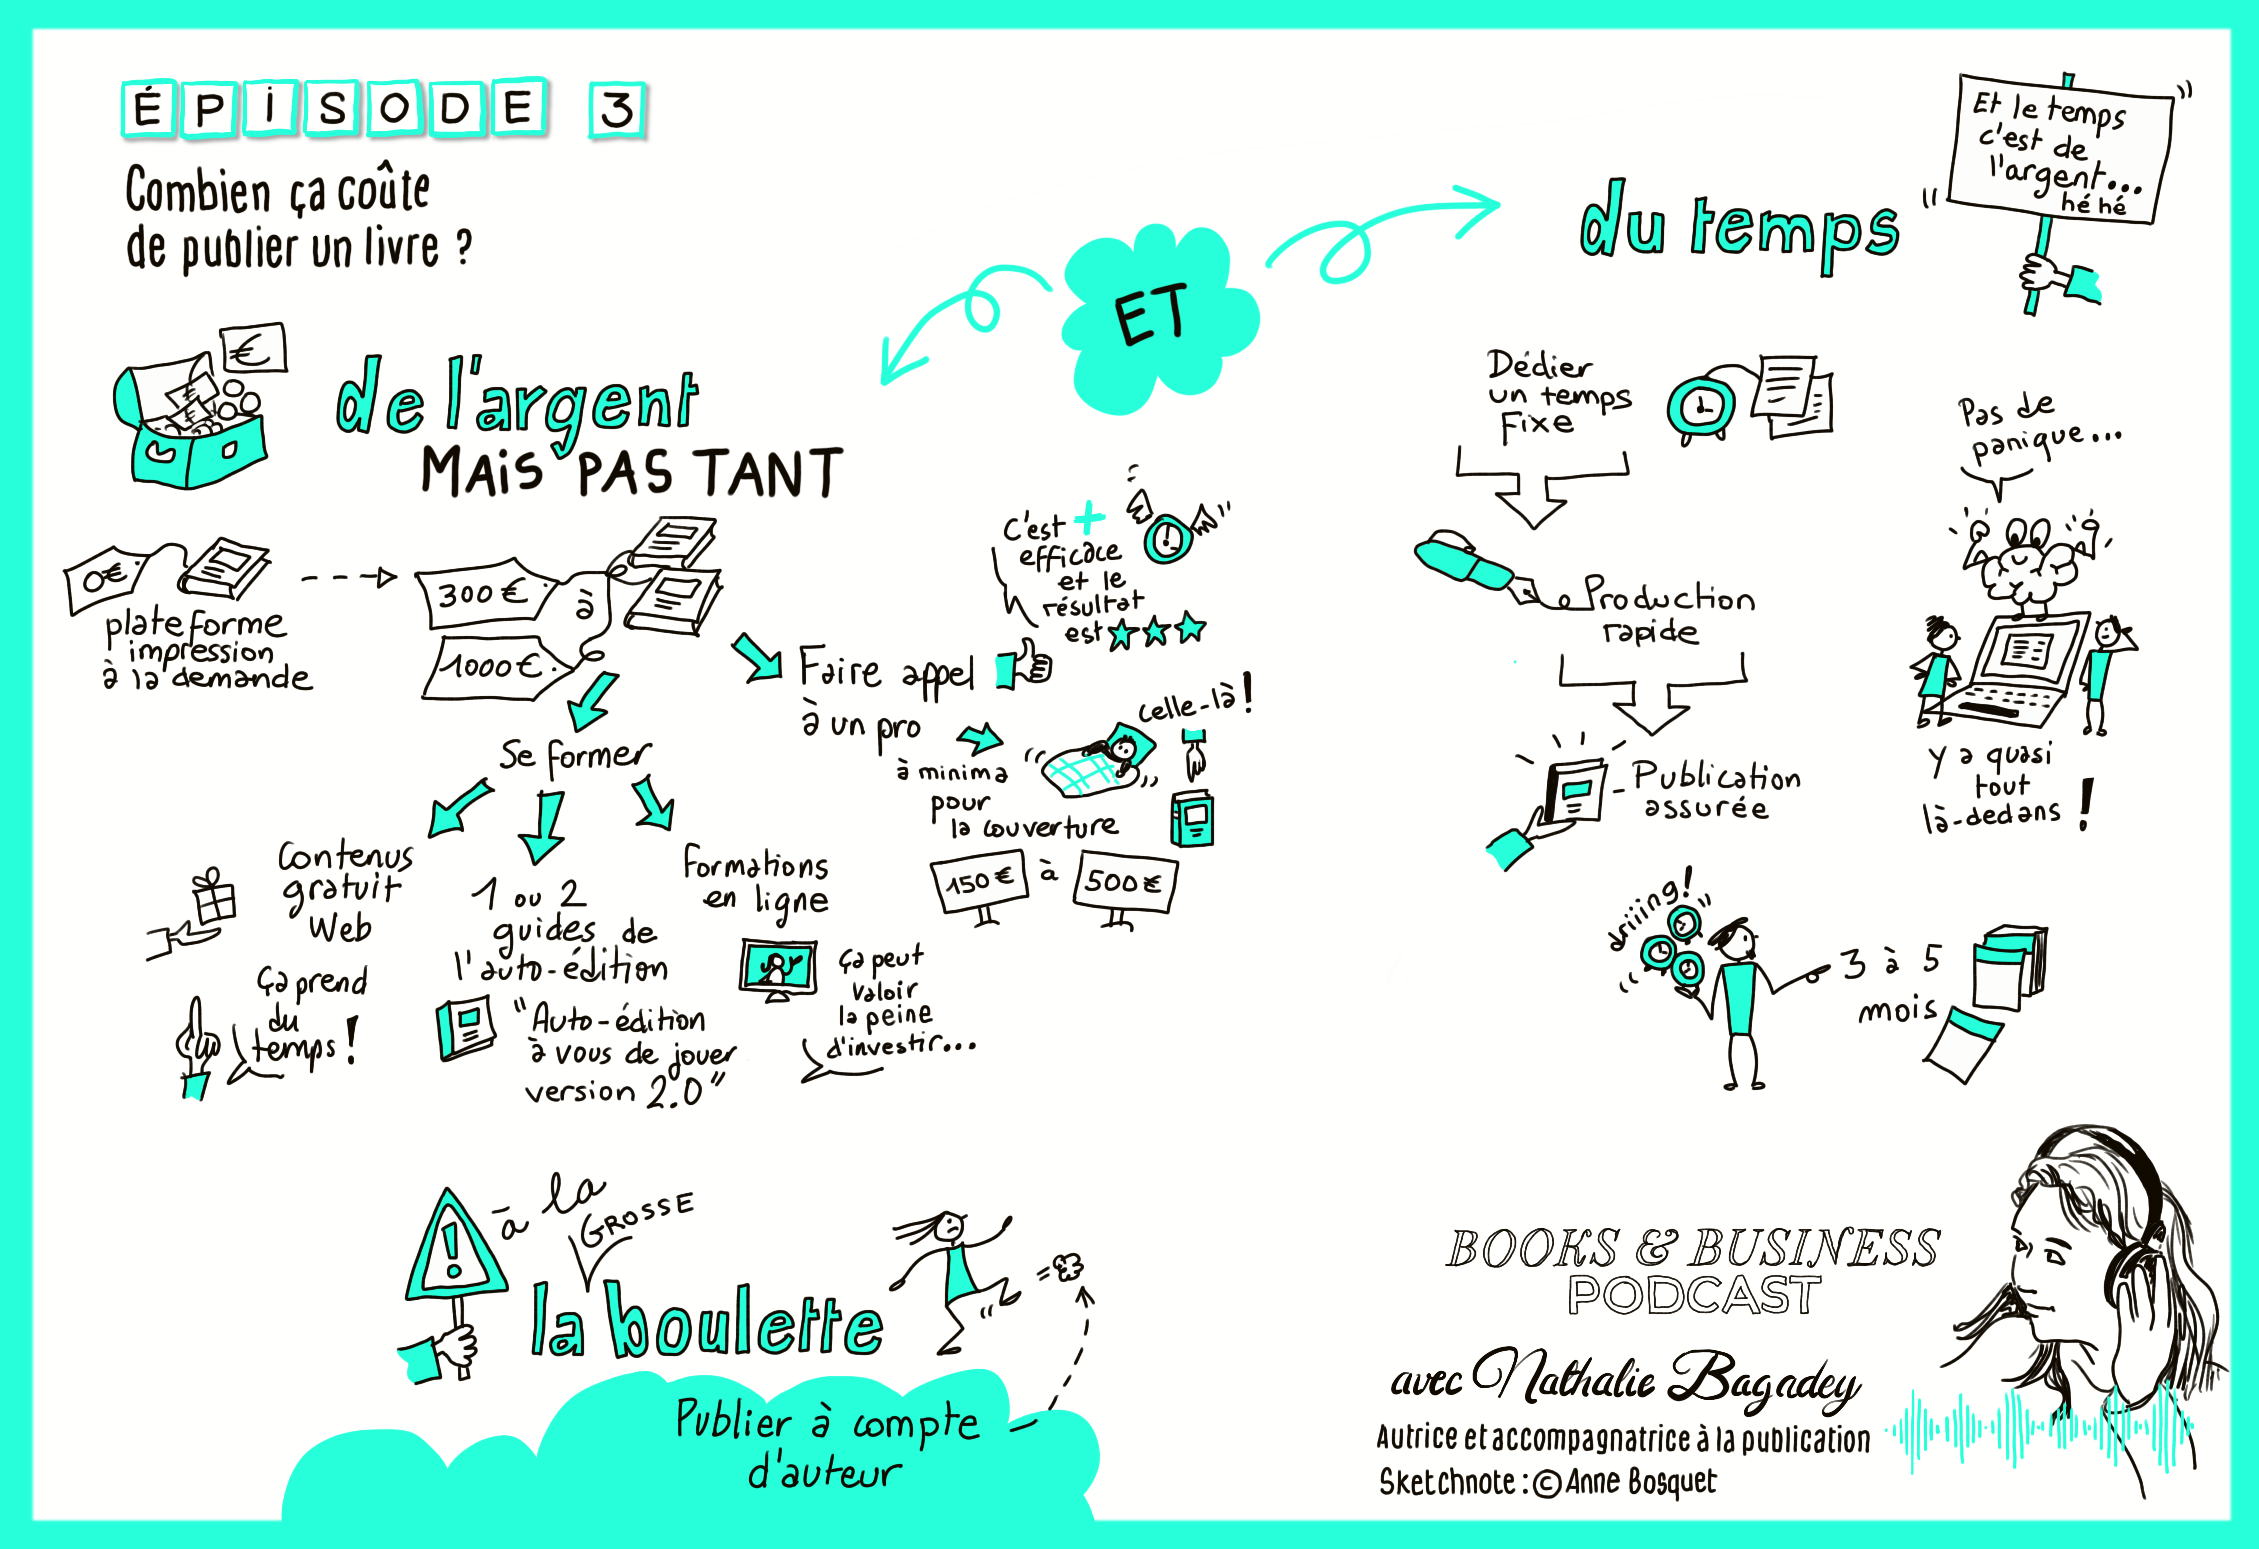 ÉPISODE 3
Combien ça coûte
de publier un livre ?
ET
€
de l'argent
MAIS PAS TANT
0€
plateforme
impression
à la demande
300 €
à
1000 €
Se former
Contenus
gratuit
Web
Ça prend
du
temps !
1 ou 2
guides de
l'auto-édition
"Auto-édition
à vous de jouer
version 2.0"
Formations
en ligne
Ça peut
valoir
la peine
d'investir...
Faire appel
à un pro
C'est +
efficace
et le
résultat
est
à minima
pour
la couverture
celle-là !
150 €
à
500 €
du temps
Et le temps
c'est de
l'argent...
hé hé
Dédier
un temps
Fixe
Production
rapide
Publication
assurée
Pas de
panique...
Y a quasi
tout
là-dedans !
driiing !
3 à 5
mois
!
à la
GROSSE
la boulette
Publier à compte
d'auteur
BOOKS & BUSINESS
PODCAST
avec Nathalie Bagadey
Autrice et accompagnatrice à la publication
Sketchnote : © Anne Bosquet